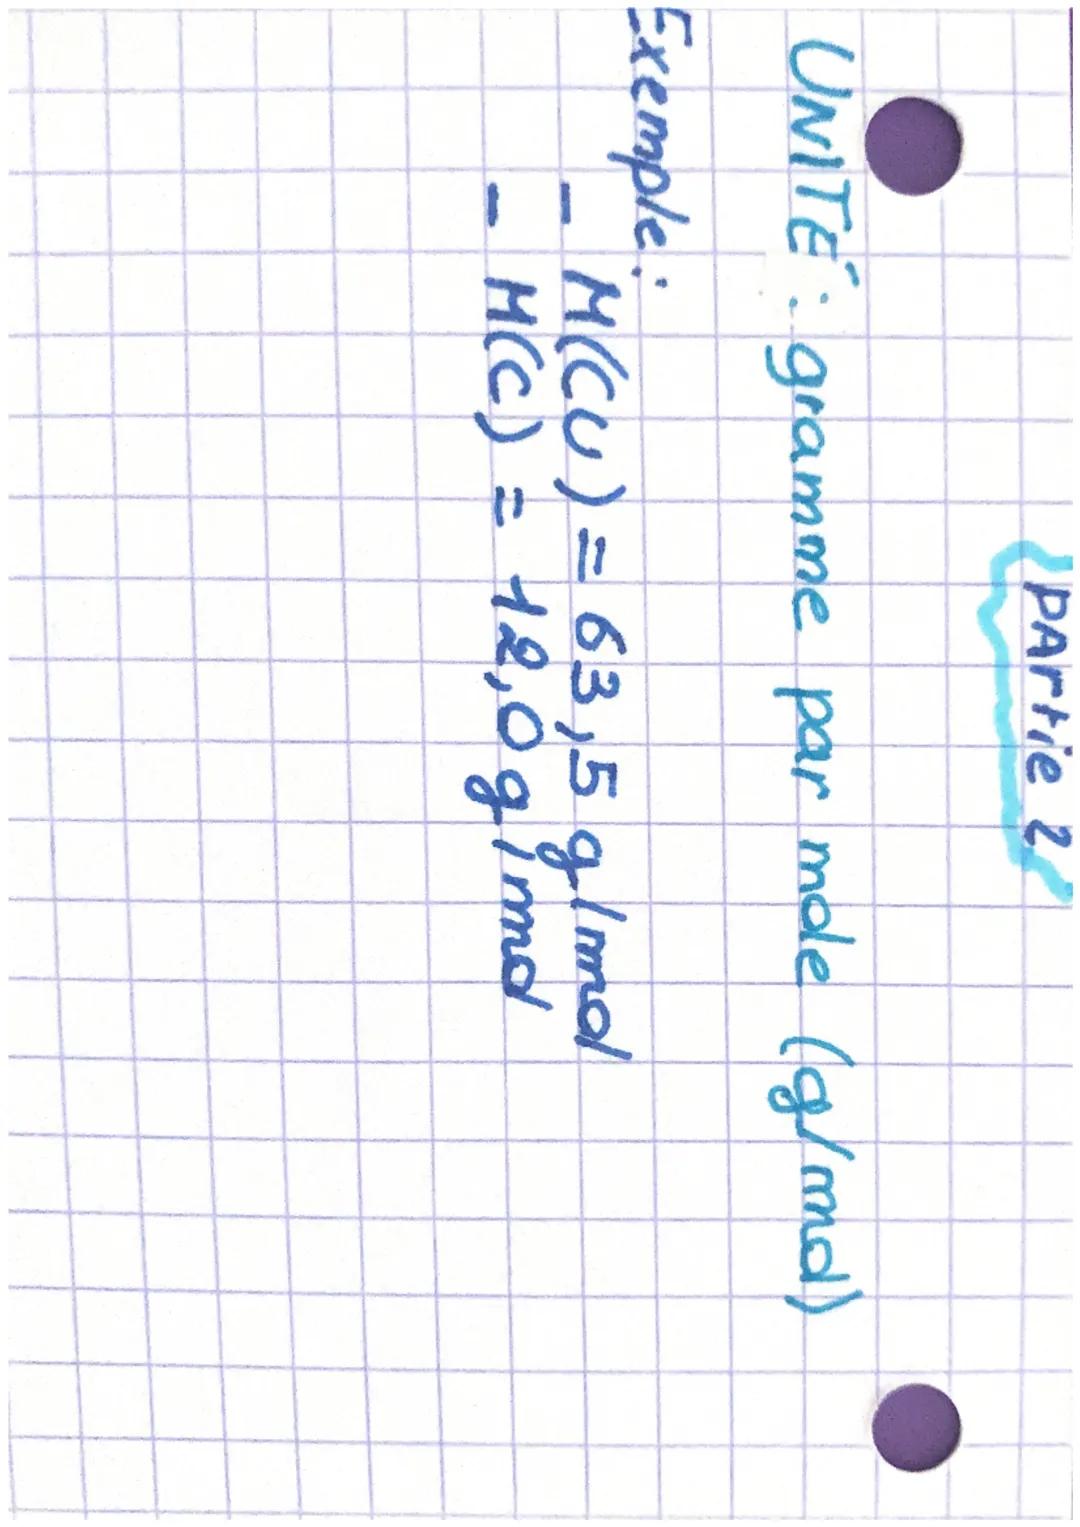 PArtie 2
UNITÉ : gramme par mole (g/mol)
Exemple :
- M(Cu) = 63,5 g/mol
- M(C) = 12,0 g/mol